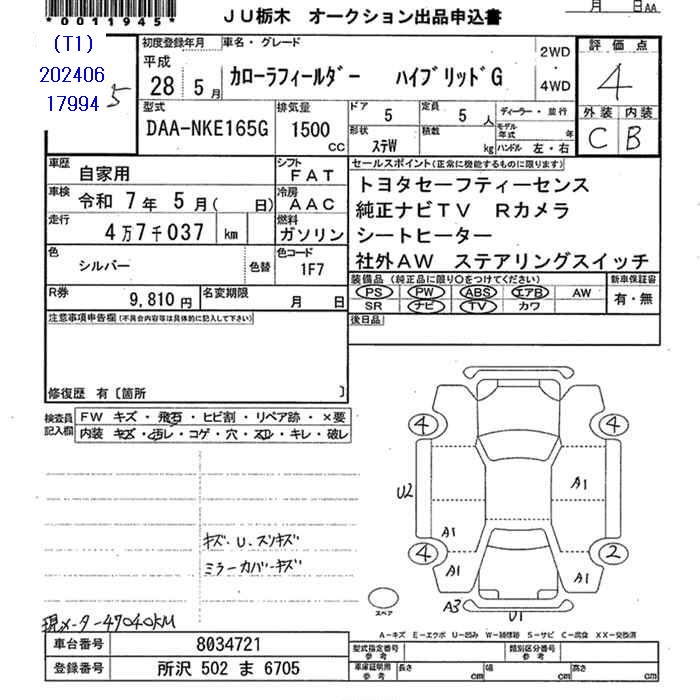 *0011945*
JU栃木 オークション出品申込書
月 日AA
(T1)
202406
17994
5
初度登録年月 車名・グレード
平成
28 5月 カローラフィールダー ハイブリッドG
2WD
・
4WD
評価点
4
外装 内装
C B
型式 排気量 ドア 定員 ディーラー・並行
DAA-NKE165G 1500 CC 5 5 人
形状 積載 モデル年式 年
ステW kg ハンドル 左・右
車歴 自家用 シフト FAT
車検 令和 7年 5月( 日) 冷房 AAC
走行 4万7千037 km 燃料 ガソリン
色 シルバー 色替 色コード 1F7
R券 9,810円 名変期限 月 日
セールスポイント(正常に機能するものに限ります)
トヨタセーフティーセンス
純正ナビTV Rカメラ
シートヒーター
社外AW ステアリングスイッチ
装備品 (純正品に限り○をつけてください) 新車保証書
PS PW ABS エアB AW 有・無
SR ナビ TV カワ
後日品
注意事項申告欄(不具合内容等は具体的に記入して下さい)
修復歴 有〔箇所 〕
検査員記入欄 FW キズ・飛石・ヒビ割・リペア跡・×要
内装 キズ・汚レ・コゲ・穴・スレ・キレ・破レ
4 4
U2 A1
A1
4 2
A1 A1
A3 U1
スペア
キズ・U・スリキズ
ミラーカバーキズ
現メーター47040KM
A-キズ E-エクボ U-凹み W-補修跡 S-サビ C-腐食 XX-交換済
車台番号 8034721
登録番号 所沢 502 ま 6705
型式指定番号 参考 類別区分番号 参考
車庫証明用 参考 長さ cm 幅 cm 高さ cm